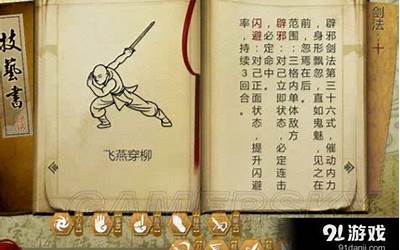 技藝書
飞燕穿柳
剑法：十
辟邪剑法第三十六式，催动内力
，身形飘忽，直如鬼魅，见之在
前，忽焉在后。
范围：三格内单体敌方
辟邪：对己立即状态，必定连击
，必定命中
闪避：对己正面状态，提升闪避
率，持续3回合。
GAMERSKY
91游戏
www.91danji.com